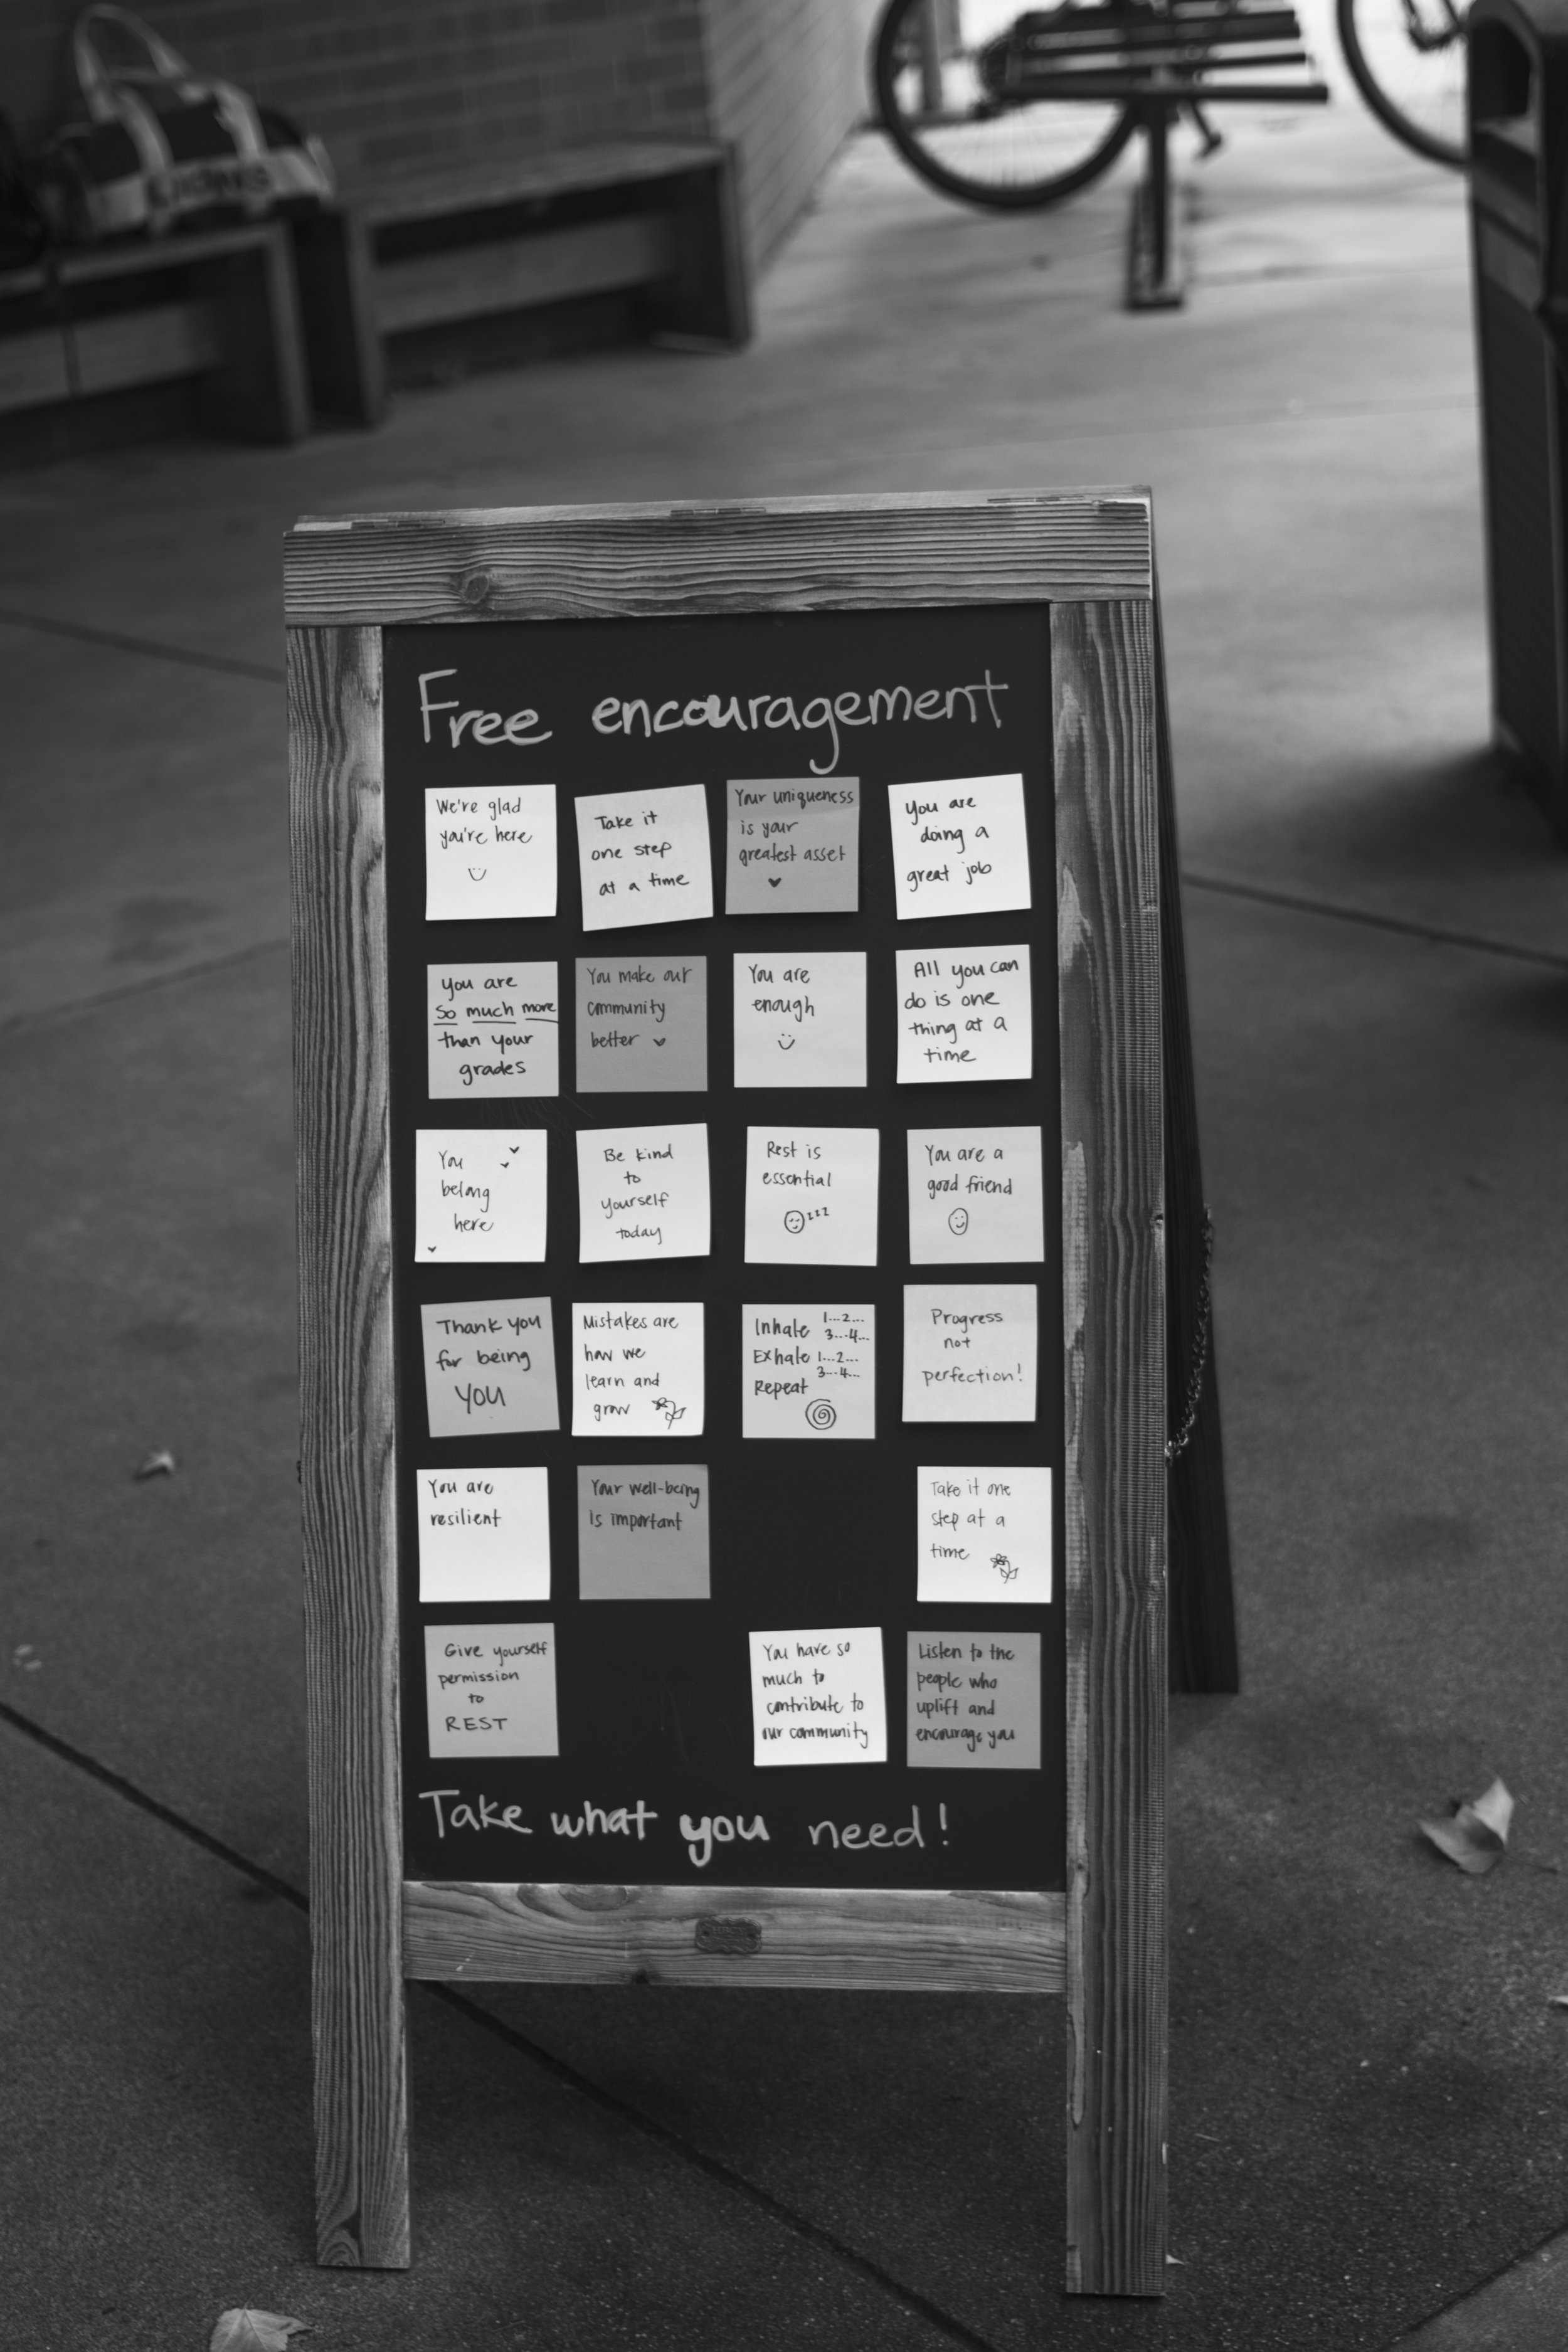 Free encouragement
We're glad
you're here
Take it
one step
at a time
Your uniqueness
is your
greatest asset
You are
doing a
great job
you are
so much more
than your
grades
You make our
community
better
You are
enough
All you can
do is one
thing at a
time
You
belong
here
Be kind
to
yourself
today
Rest is
essential
zzz
You are a
good friend
Thank you
for being
YOU
Mistakes are
how we
learn and
grow
Inhale 1...2...
3...4...
Exhale 1...2...
3...4...
Repeat
Progress
not
perfection!
You are
resilient
Your well-being
is important
Take it one
step at a
time
Give yourself
permission
to
REST
You have so
much to
contribute to
our community
Listen to the
people who
uplift and
encourage you
Take what you need!